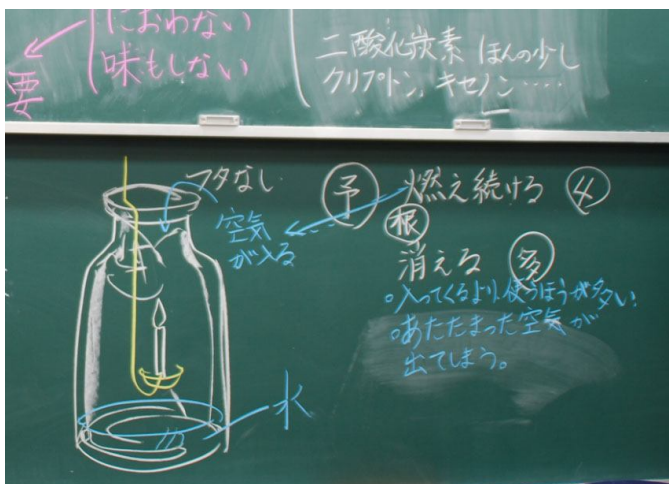 におわない
味もしない
要
二酸化炭素 ほんの少し
クリプトン、キセノン‥‥
フタなし
空気
が入る
水
予 燃え続ける 4
根
消える 多
○入ってくるより、使うほうが多い。
○あたたまった空気が
出てしまう。